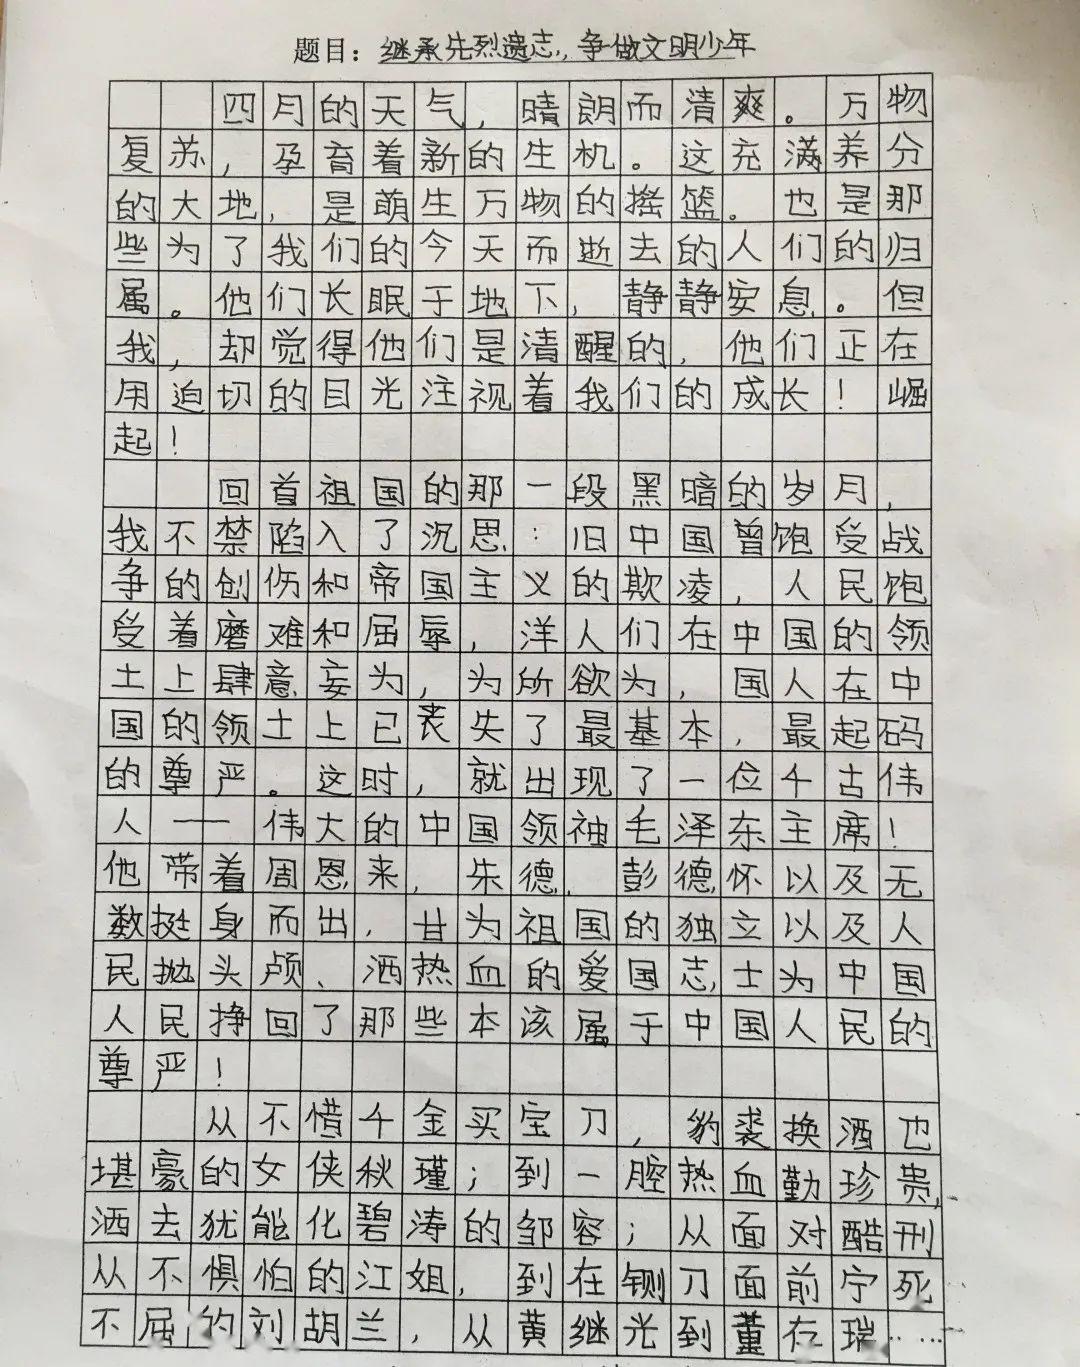 题目：继承先烈遗志，争做文明少年
四月的天气，晴朗而清爽。万物
复苏，孕育着新的生机。这充满养分
的大地，是萌生万物的摇篮。也是那
些为了我们的今天而逝去的人们的归
属。他们长眠于地下，静静安息。但
我，却觉得他们是清醒的，他们正在
用迫切的目光注视着我们的成长！崛
起！
回首祖国的那一段黑暗的岁月，
我不禁陷入了沉思：旧中国曾饱受战
争的创伤和帝国主义的欺凌，人民饱
受着磨难和屈辱，洋人们在中国的领
土上肆意妄为，为所欲为，国人在中
国的领土上已丧失了最基本，最起码
的尊严。这时，就出现了一位千古伟
人——伟大的中国领袖毛泽东主席！
他带着周恩来，朱德，彭德怀以及无
数挺身而出，甘为祖国的独立以及人
民抛头颅、洒热血的爱国志士为中国
人民挣回了那些本该属于中国人民的
尊严！
从不惜千金买宝刀，豹裘换酒也
堪豪的女侠秋瑾；到一腔热血勤珍贵，
洒去犹能化碧涛的邹容；从面对酷刑
从不惧怕的江姐，到在铡刀面前宁死
不屈的刘胡兰，从黄继光到董存瑞……